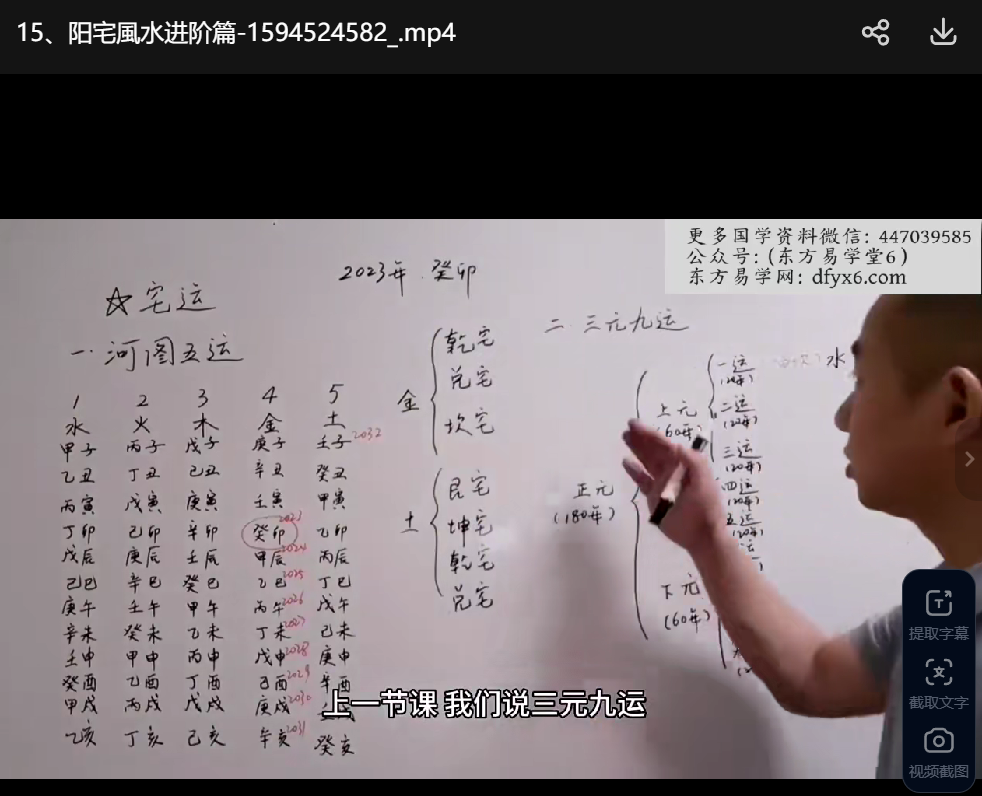 15、阳宅風水进阶篇-1594524582_.mp4
更多国学资料微信: 447039585
公众号:(东方易学堂6)
东方易学网: dfyx6.com
2023年 癸卯
☆宅运
一.河图五运
1 2 3 4 5
水 火 木 金 土
甲子 丙子 戊子 庚子 壬子 2032
乙丑 丁丑 己丑 辛丑 癸丑
丙寅 戊寅 庚寅 壬寅 甲寅
丁卯 己卯 辛卯 癸卯 2023 乙卯
戊辰 庚辰 壬辰 甲辰 2024 丙辰
己巳 辛巳 癸巳 乙巳 2025 丁巳
庚午 壬午 甲午 丙午 2026 戊午
辛未 癸未 乙未 丁未 2027 己未
壬申 甲申 丙申 戊申 2028 庚申
癸酉 乙酉 丁酉 己酉 2029 辛酉
甲戌 丙戌 戊戌 庚戌 2030
乙亥 丁亥 己亥 辛亥 2031 癸亥
金
乾宅
兑宅
坎宅
土
昆宅
坤宅
乾宅
兑宅
二 三元九运
正元
(180年)
上元
(60年)
下元
(60年)
一运 水
(20年)
二运
(20年)
三运
(20年)
四运
(20年)
五运
(20年)
上一节课 我们说三元九运
提取字幕
截取文字
视频截图